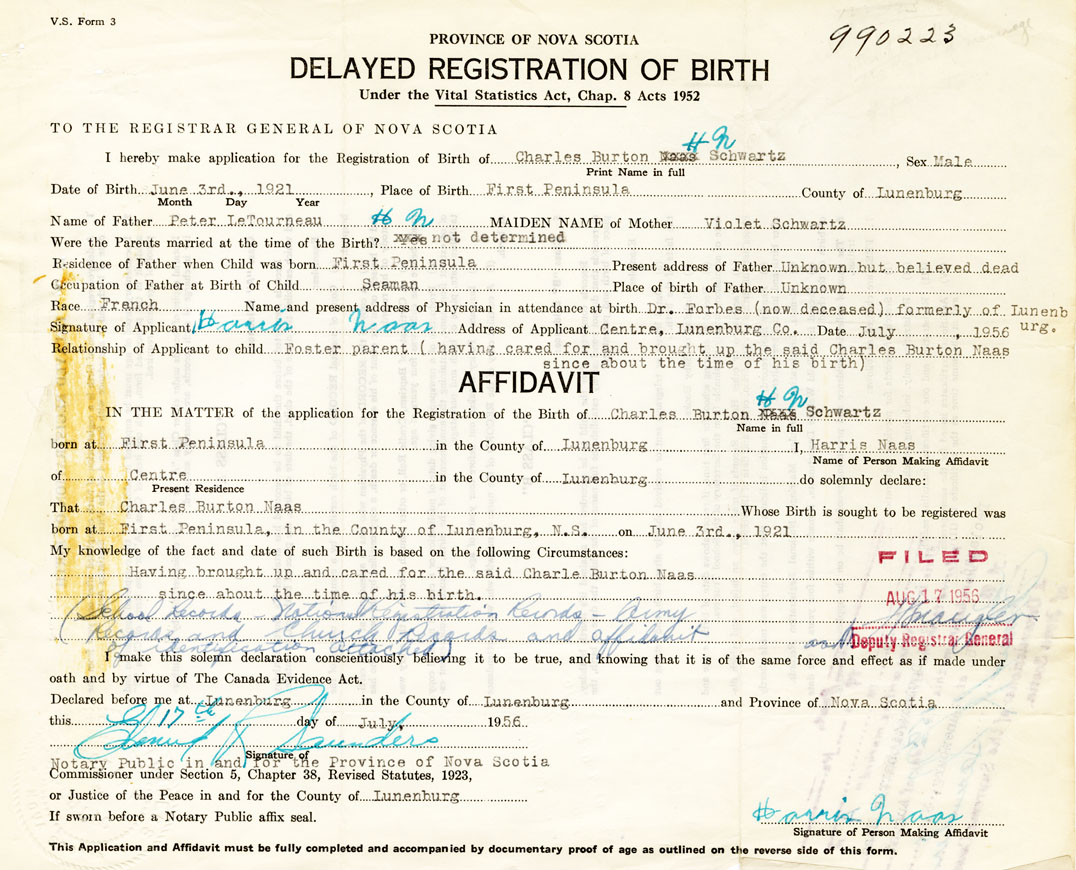 V.S. Form 3
990223
PROVINCE OF NOVA SCOTIA
DELAYED REGISTRATION OF BIRTH
Under the Vital Statistics Act, Chap. 8 Acts 1952
TO THE REGISTRAR GENERAL OF NOVA SCOTIA
H N
I hereby make application for the Registration of Birth of Charles Burton Naas Schwartz, Sex Male
Print Name in full
Date of Birth June 3rd., 1921, Place of Birth First Peninsula County of Lunenburg
Month Day Year
Name of Father Peter LeTourneau H N MAIDEN NAME of Mother Violet Schwartz
Were the Parents married at the time of the Birth? Yes not determined
Residence of Father when Child was born First Peninsula Present address of Father Unknown but believed dead
Occupation of Father at Birth of Child Seaman Place of birth of Father Unknown
Race French Name and present address of Physician in attendance at birth Dr. Forbes (now deceased) formerly of Lunenb
urg.
Signature of Applicant Harris Naas Address of Applicant Centre, Lunenburg Co. Date July, 1956
Relationship of Applicant to child Foster parent ( having cared for and brought up the said Charles Burton Naas
since about the time of his birth)
AFFIDAVIT
H N
IN THE MATTER of the application for the Registration of the Birth of Charles Burton Naas Schwartz
Name in full
born at First Peninsula in the County of Lunenburg I, Harris Naas
Name of Person Making Affidavit
of Centre in the County of Lunenburg do solemnly declare:
Present Residence
That Charles Burton Naas Whose Birth is sought to be registered was
born at First Peninsula, in the County of Lunenburg, N.S. on June 3rd., 1921
My knowledge of the fact and date of such Birth is based on the following Circumstances:
FILED
Having brought up and cared for the said Charle Burton Naas
since about the time of his birth.
AUG 17 1956
(School Records - National Registration Records - Army
(Records and Church Records and affidavit
Deputy Registrar General
of identification attached)
I make this solemn declaration conscientiously believing it to be true, and knowing that it is of the same force and effect as if made under
oath and by virtue of The Canada Evidence Act.
Declared before me at Lunenburg in the County of Lunenburg and Province of Nova Scotia
this 17th day of July, 1956
Saunders
Signature of
Notary Public in and for the Province of Nova Scotia
Commissioner under Section 5, Chapter 38, Revised Statutes, 1923,
or Justice of the Peace in and for the County of Lunenburg
If sworn before a Notary Public affix seal.
Harris Naas
Signature of Person Making Affidavit
This Application and Affidavit must be fully completed and accompanied by documentary proof of age as outlined on the reverse side of this form.